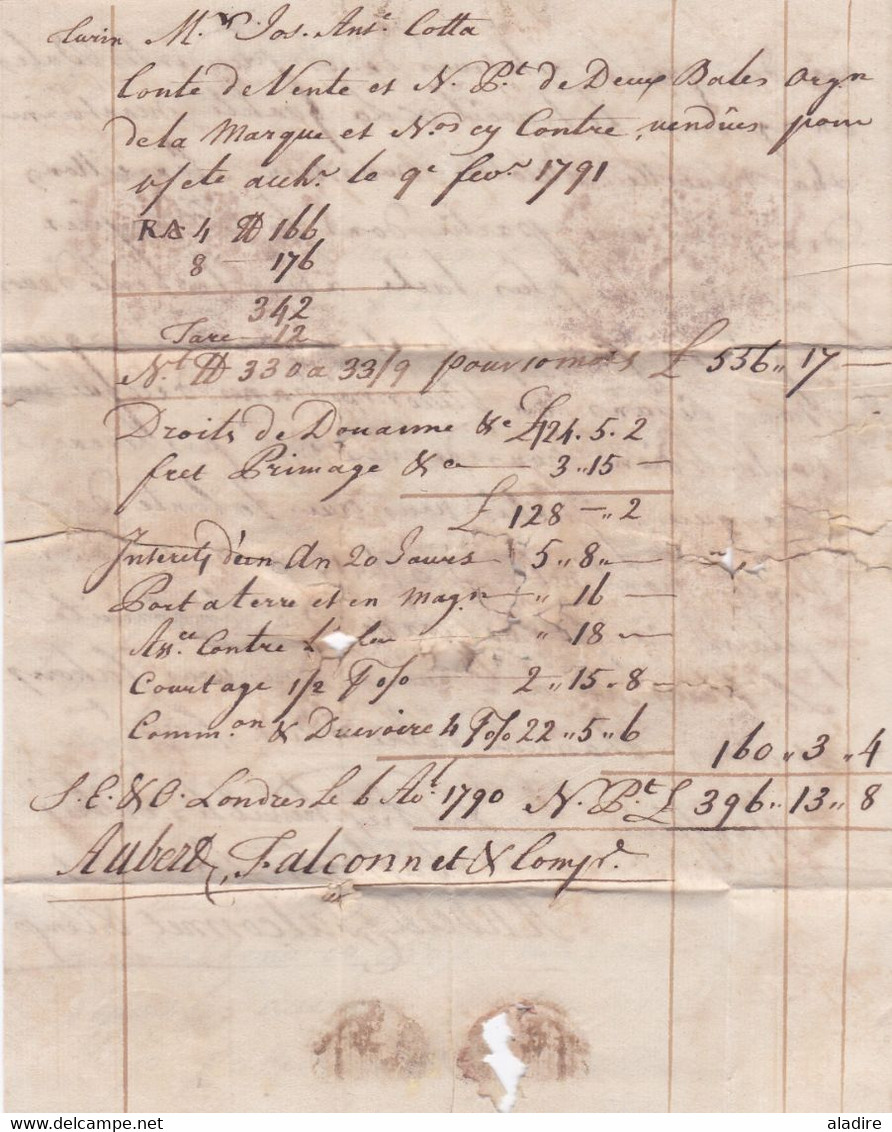 Turin Mr. Jos. Ante. Cotta
Conte de Vente et N. Pt. de Deux Bales Orgn
de la Marque et Nos cy Contre, vendües pour
s/cte le 9e fevr 1791
RA 4 ℔ 166
8 — 176
342
Tare 12
Nt ℔ 330 a 33/9 pour 10 mois £ 556 〃 17 —
Droits de Douanne &c £ 124. 5. 2
fret Primage &ca — 3 〃 15 —
£ 128 — 〃 2
Interets d'un An 20 Jours 5 〃 8 〃 —
Port a terre et en Magn — 〃 16 —
Assce Contre 〃 18 —
Courtage 1/2 P % 2 〃 15 〃 8
Common & Ducroire 4 P % 22 〃 5 〃 6
160 〃 3 〃 4
S. E. & O. Londres Le 6 1790 N. Pt £ 396 〃 13 〃 8
Aubert, Falconnet & Comp.
aladire.delcampe.net